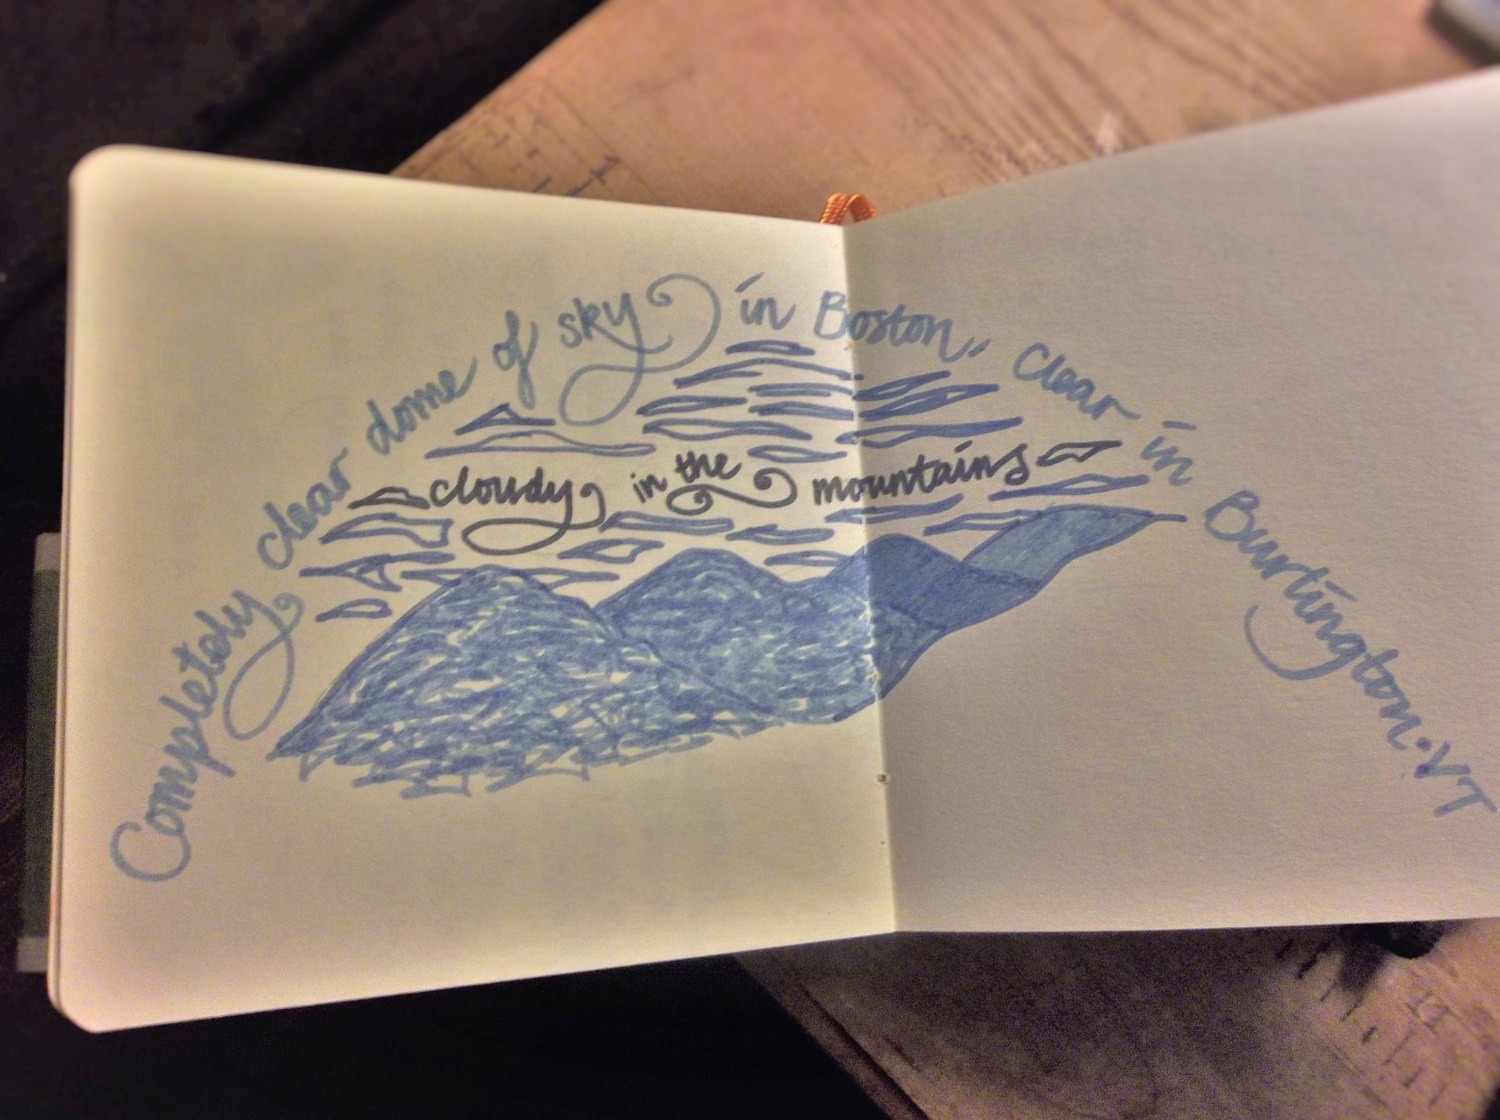 Completely clear dome of sky in Boston, clear in Burlington. VT
cloudy in the mountains